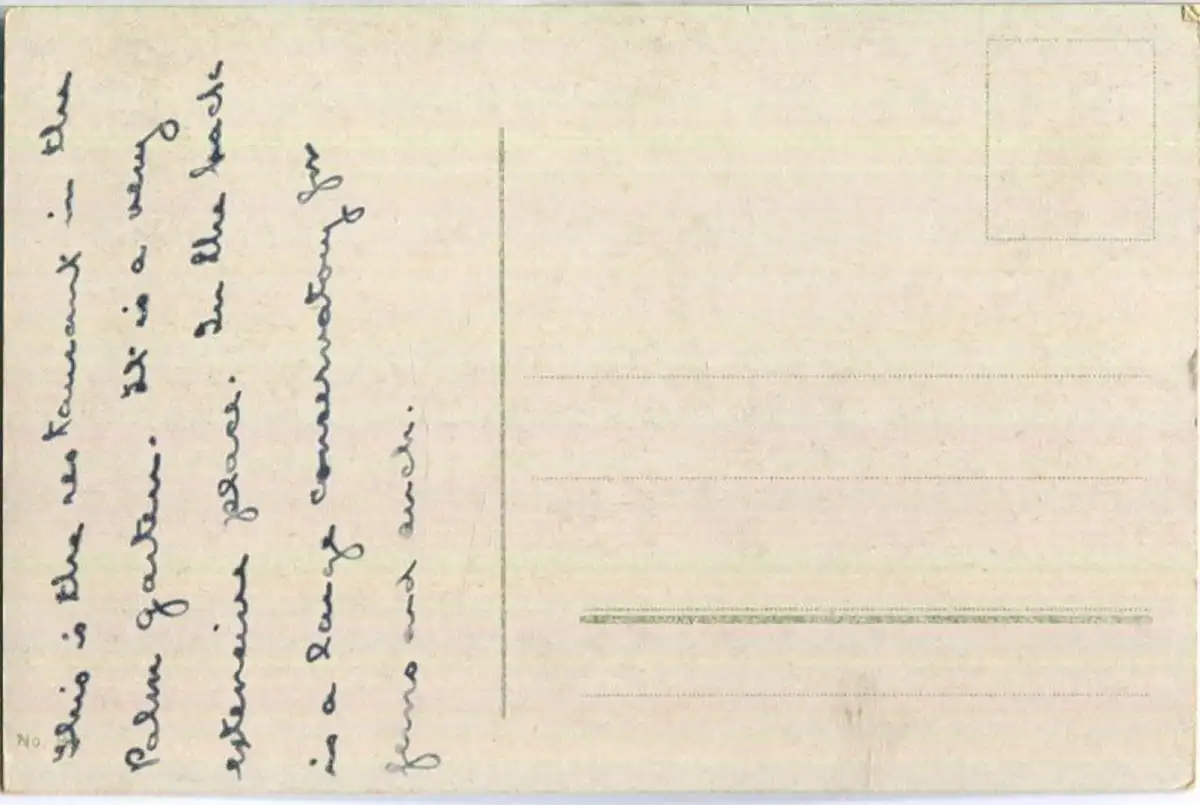 This is the restaurant in the
Palm garten. It is a very
extensive place. In the back
is a large conservatory for
ferns and such.
No.